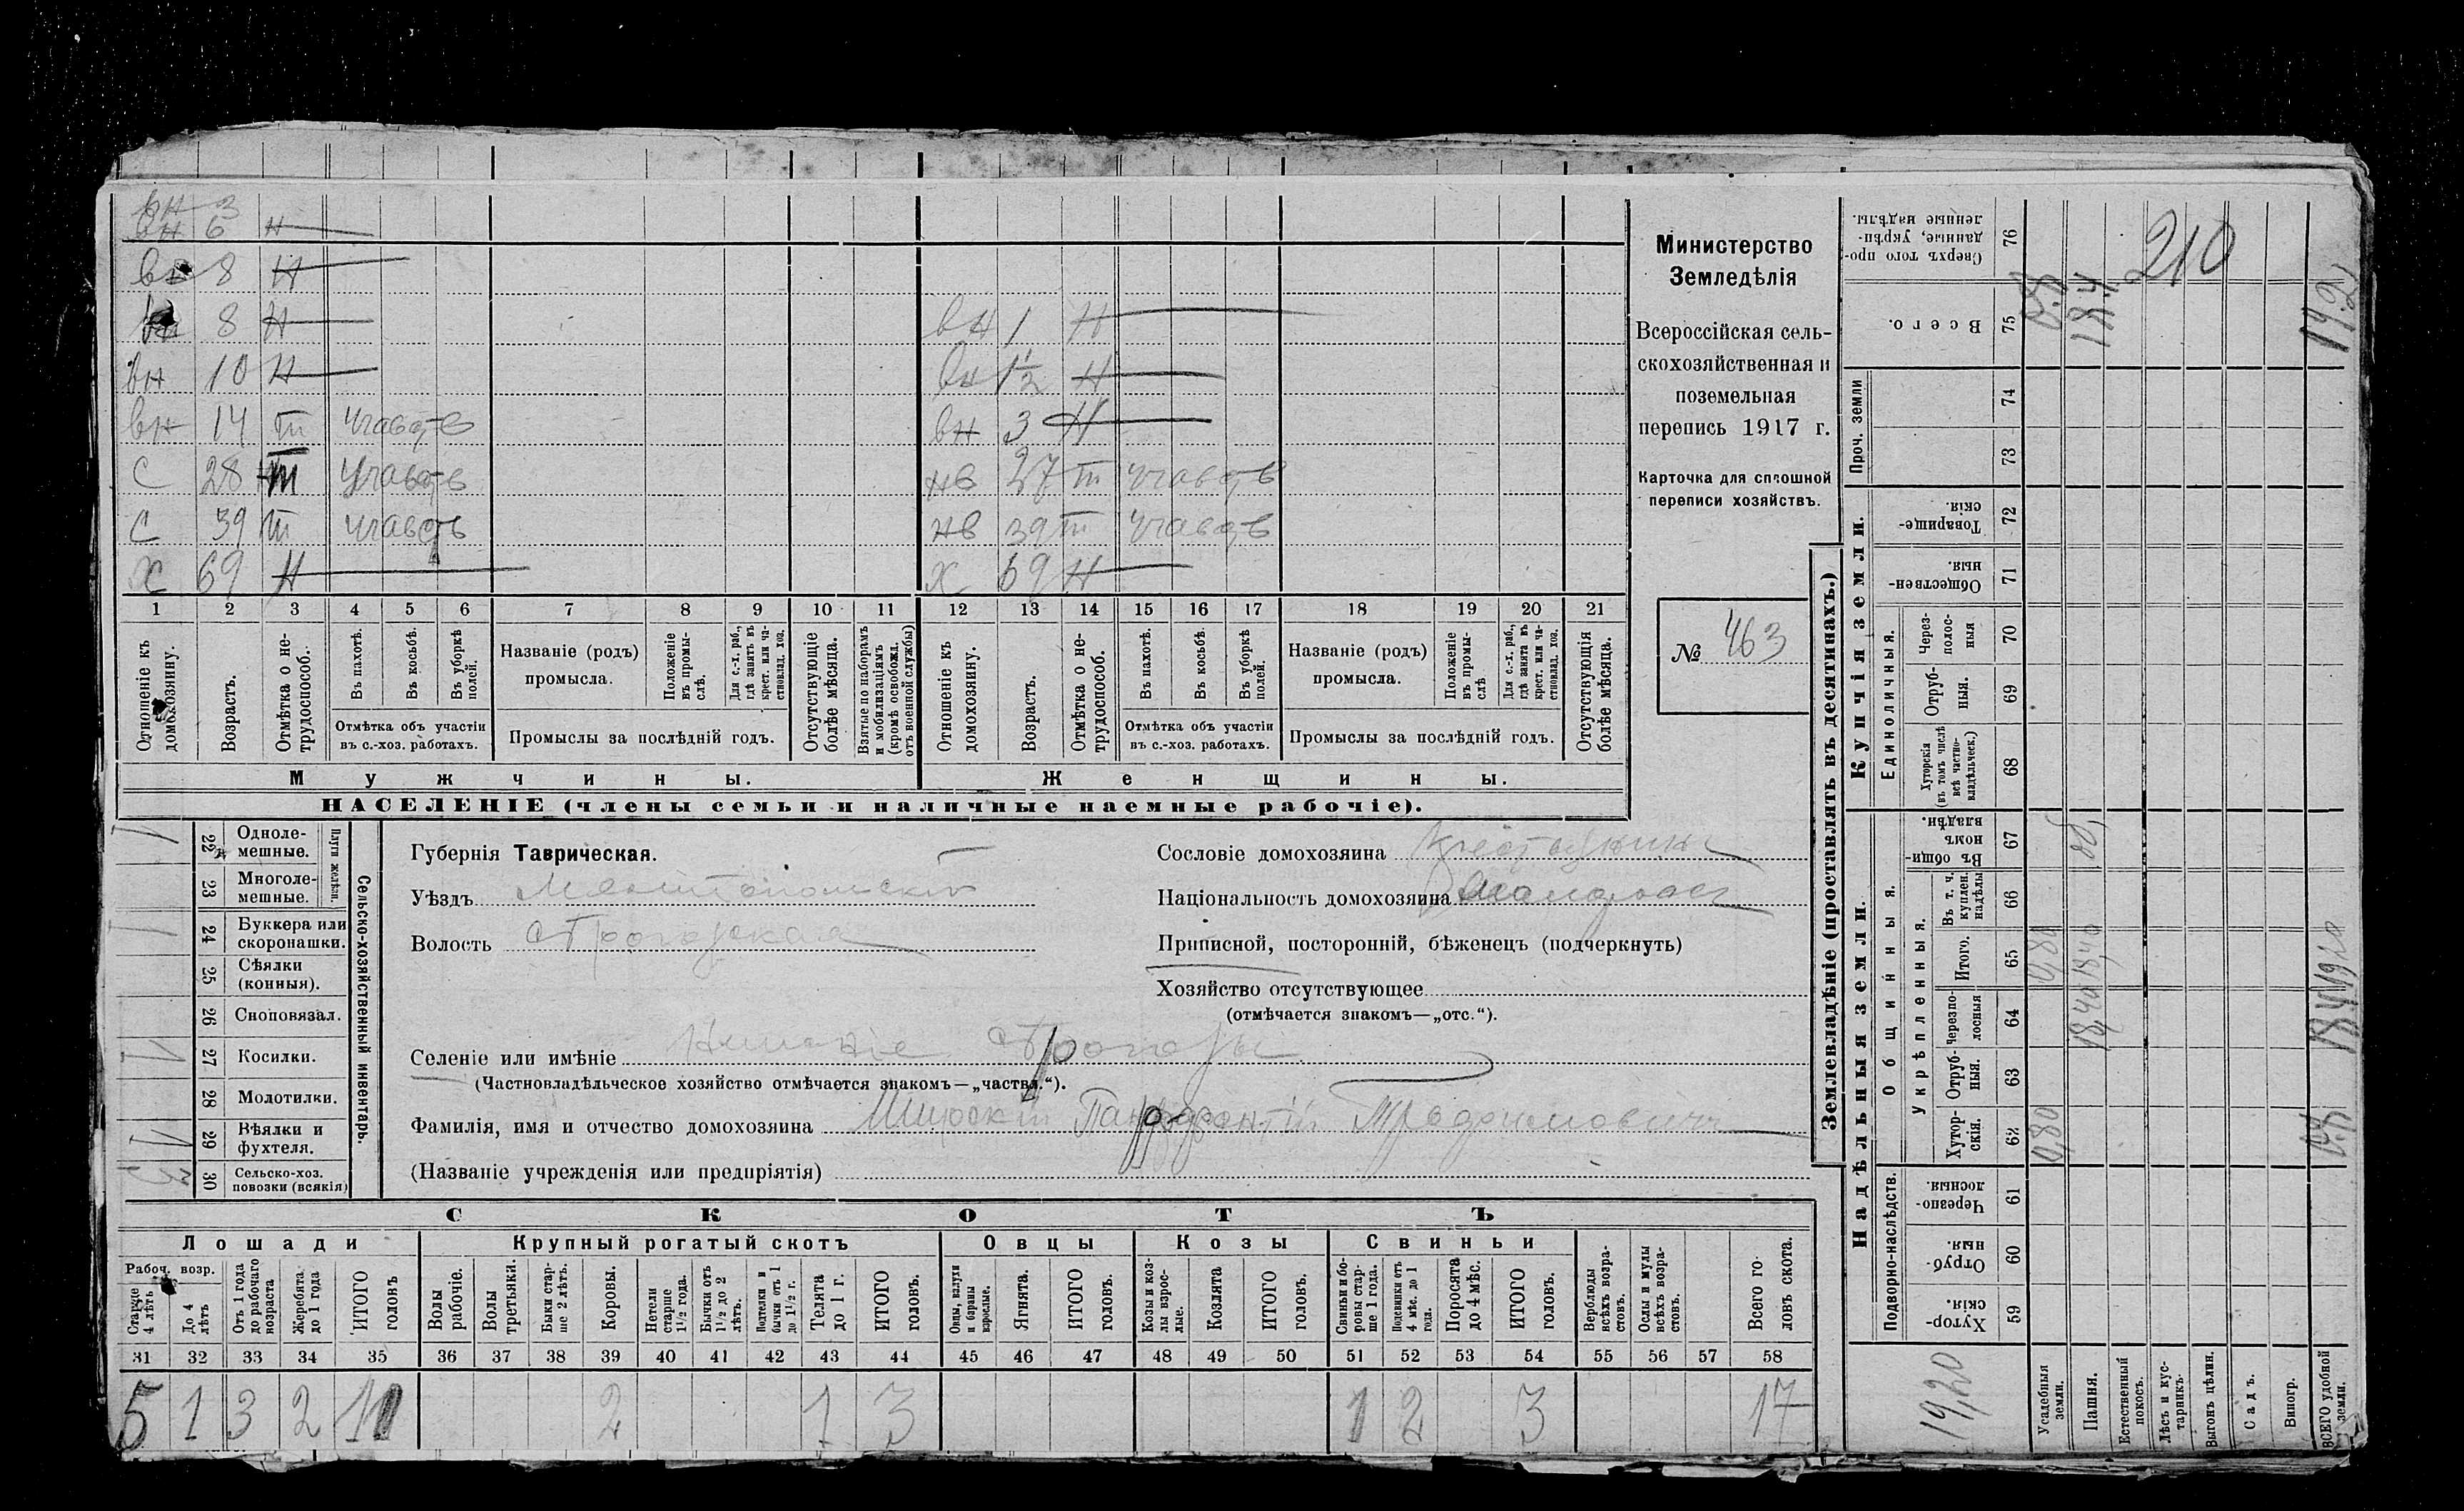 вн 3
вн 6 н
вн 8 н
вн 8 н
вн 10 н
вн 14 т участв
с 28 т участв
с 39 т участв
х 69 н
вн 1 н
вн 1½ н
вн 3 н
нв 27 т участв
нв 39 т участв
х 69 н
1 2 3 4 5 6 7 8 9 10 11 12 13 14 15 16 17 18 19 20 21
Отношеніе къ домохозяину.
Возрастъ.
Отмѣтка о не-трудоспособ.
Въ пахотѣ.
Въ косьбѣ.
Въ уборкѣ полей.
Отмѣтка объ участіи въ с.-хоз. работахъ.
Названіе (родъ) промысла.
Положеніе въ промы-слѣ.
Для с.-х. раб., гдѣ занятъ въ крест. или ча-стновлад. хоз.
Промыслы за послѣдній годъ.
Отсутствующіе болѣе мѣсяца.
Взятые по наборамъ и мобилизаціямъ (кромѣ освобожд. отъ военной службы)
Отношеніе къ домохозяину.
Возрастъ.
Отмѣтка о не-трудоспособ.
Въ пахотѣ.
Въ косьбѣ.
Въ уборкѣ полей.
Отмѣтка объ участіи въ с.-хоз. работахъ.
Названіе (родъ) промысла.
Положеніе въ промы-слѣ
Для с.-х. раб., гдѣ занята въ крест. или ча-стновлад. хоз.
Промыслы за послѣдній годъ.
Отсутствующія болѣе мѣсяца.
Мужчины.
Женщины.
НАСЕЛЕНІЕ (члены семьи и наличные наемные рабочіе).
Министерство
Земледѣлія
Всероссійская сель-
скохозяйственная и
поземельная
перепись 1917 г.
Карточка для сплошной
переписи хозяйствъ.
№ 463
22 Одноле-мешные.
23 Многоле-мешные.
Плуги желѣзн.
24 Буккера или скоропашки.
25 Сѣялки (конныя).
26 Сноповязал.
27 Косилки.
28 Молотилки.
29 Вѣялки и фухтеля.
30 Сельско-хоз. повозки (всякія)
Сельско-хозяйственный инвентарь.
Губернія Таврическая.
Уѣздъ Мелитопольскій
Волость Строгоновская
Сословіе домохозяина
Національность домохозяина
Приписной, посторонній, бѣженецъ (подчеркнуть)
Хозяйство отсутствующее
(отмѣчается знакомъ—„отс.“).
Селеніе или имѣніе
(Частновладѣльческое хозяйство отмѣчается знакомъ—„частвл.“).
Фамилія, имя и отчество домохозяина Трофимовичъ
(Названіе учрежденія или предпріятія)
СКОТЪ
Лошади
Рабоч. возр.
Старше 4 лѣтъ
До 4 лѣтъ
Отъ 1 года до рабочаго возраста
Жеребята до 1 года
ИТОГО головъ
Крупный рогатый скотъ
Волы рабочіе.
Волы третьяки.
Быки стар-ше 2 лѣтъ.
Коровы.
Нетели старше 1½ года.
Бычки отъ 1½ до 2 лѣтъ.
Подтелки и бычки отъ 1 до 1½ г.
Телята до 1 г.
ИТОГО головъ.
Овцы
Овцы, валухи и бараны взрослые.
Ягнята.
ИТОГО головъ.
Козы
Козы и коз-лы взрос-лые.
Козлята
ИТОГО головъ.
Свиньи
Свиньи и бо-ровы стар-ше 1 года.
Подсвинки отъ 4 мѣс. до 1 года.
Поросята до 4 мѣс.
ИТОГО головъ.
Верблюды всѣхъ возра-стовъ.
Ослы и мулы всѣхъ возра-стовъ.
Всего го-ловъ скота.
31 32 33 34 35 36 37 38 39 40 41 42 43 44 45 46 47 48 49 50 51 52 53 54 55 56 57 58
5 1 3 2 11 2 1 3 1 2 3 17
Землевладѣніе (проставлять въ десятинахъ.)
Надѣльныя земли.
Купчія земли.
Проч. земли
Подворно-наслѣдств.
Общинныя.
Укрѣпленныя.
Единоличныя.
Сверхъ того про-данные, укрѣп-ленные надѣлы. 76
Всего. 75
74
73
Товарище-скія. 72
Обществен-ныя. 71
Через-полос-ныя 70
Отруб-ныя. 69
Хуторскія (въ томъ числѣ всѣ частно-владѣльческ.) 68
Въ общи-номъ владѣн. 67
Въ т. ч. куплен. надѣлы 66
Итого. 65
Черезпо-лосныя 64
Отруб-ныя. 63
Хутор-скія. 62
Черезпо-лосныя 61
Отруб-ныя. 60
Хутор-скія. 59
Усадебныя земли.
Пашня.
Естественный покосъ.
Лѣсъ и кус-тарникъ.
Выгонъ цѣлин.
Садъ.
Виногр.
ВСЕГО удобной земли.
210
19,20
0,80
0,80
18,40
18,40
18,4
19,2